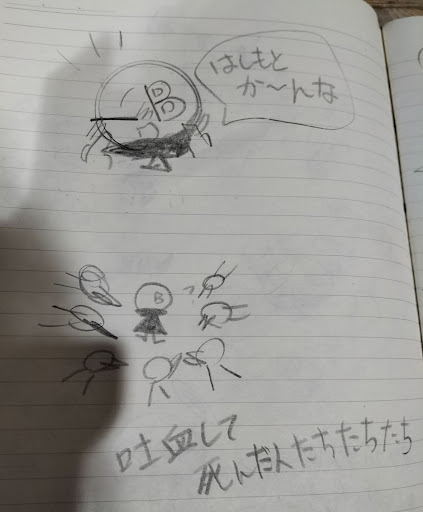 B
はしもと
か〜んな
B
?
吐血して
死んだ人たちたちたち